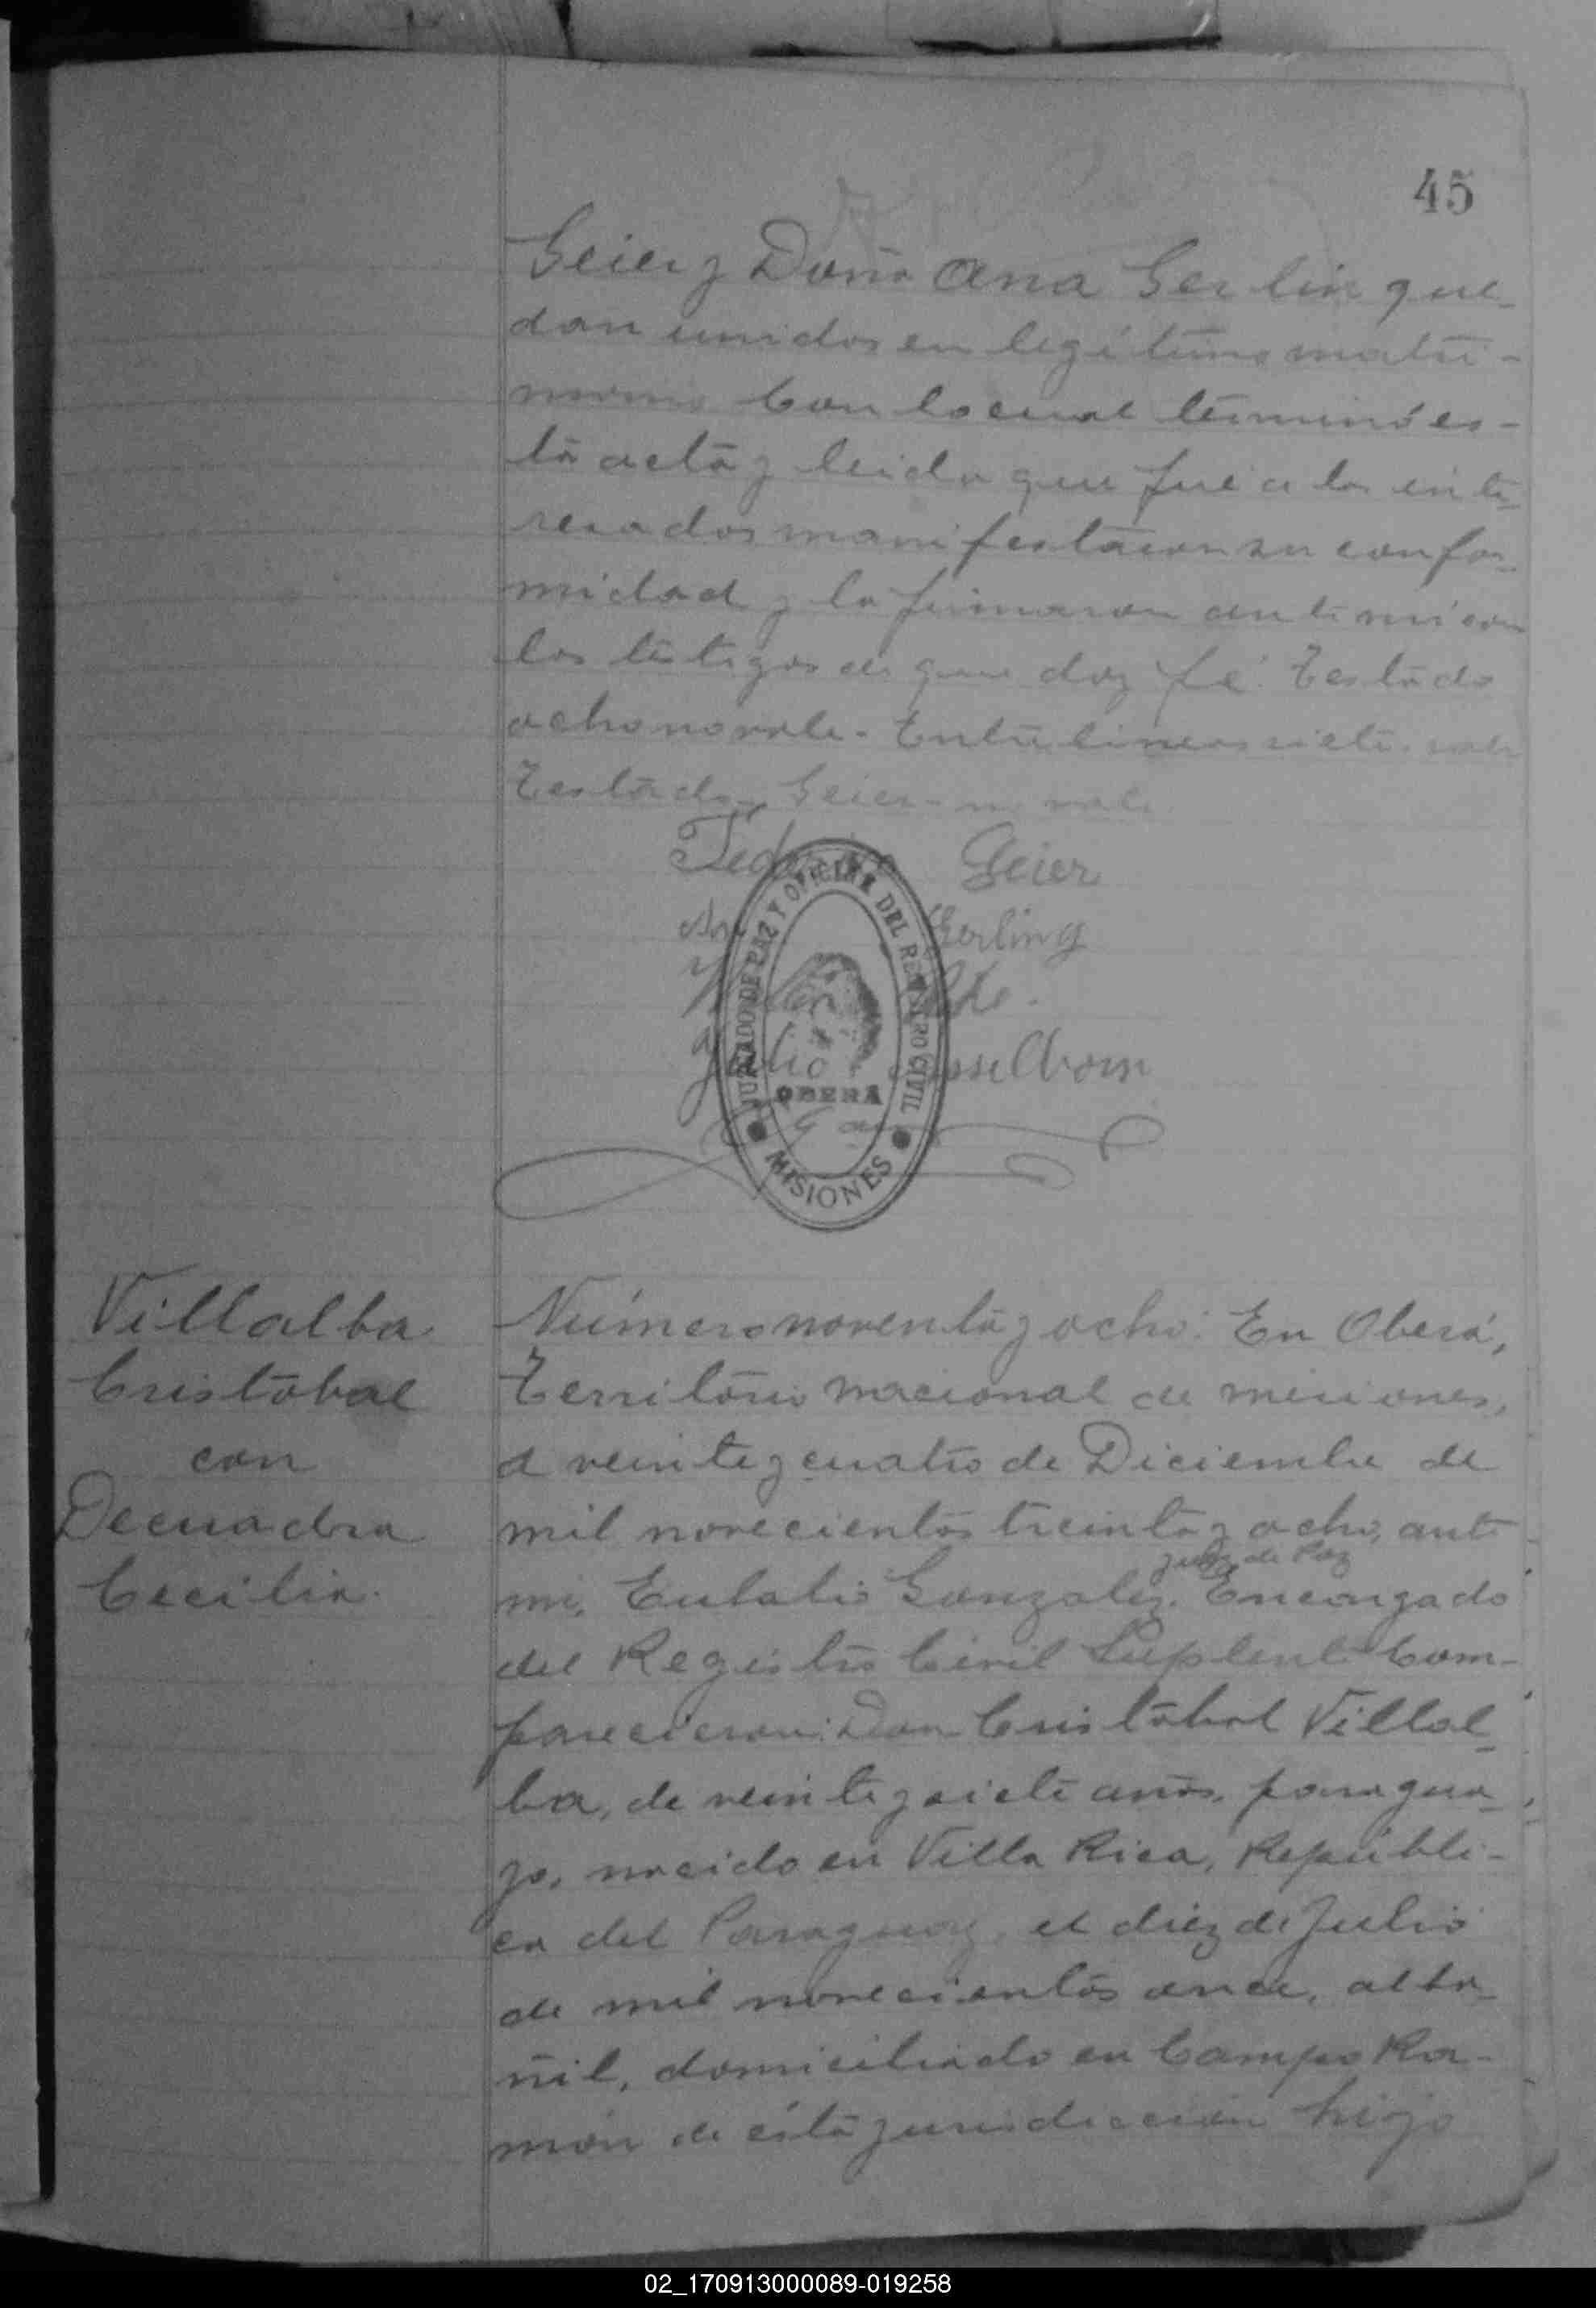 45
Geier y Doña Ana Gerlin que-
dan unidos en legítimo matri-
monio Con lo cual terminó es-
ta acta y leida que fue a los inte-
resados manifestaron su confor-
midad y la firmaron ante mi con
los testigos de que doy fé. Testado
ocho no vale. Entre lineas siete. vale
Testado. Geier - no vale
Geier
Gerling
JUZGADO DE PAZ Y OFICINA DEL REGISTRO CIVIL
OBERÁ
MISIONES
Villalba
Cristóbal
con
Decuadra
Cecilia.
Número noventa y ocho: En Oberá,
Territorio nacional de misiones,
a veinte y cuatro de Diciembre de
mil novecientos treinta y ocho, ante
Juez de Paz
mi, Eulalio Gonzalez. Encargado
del Registro Civil Suplente Com-
parecieron: Don Cristóbal Villal-
ba, de veinte y siete años, paragua-
yo, nacido en Villa Rica, Repúbli-
ca del Paraguay, el diez de Julio
de mil novecientos once, alba-
ñil, domiciliado en Campo Ra-
món de ésta jurisdicción hijo
02_170913000089-019258